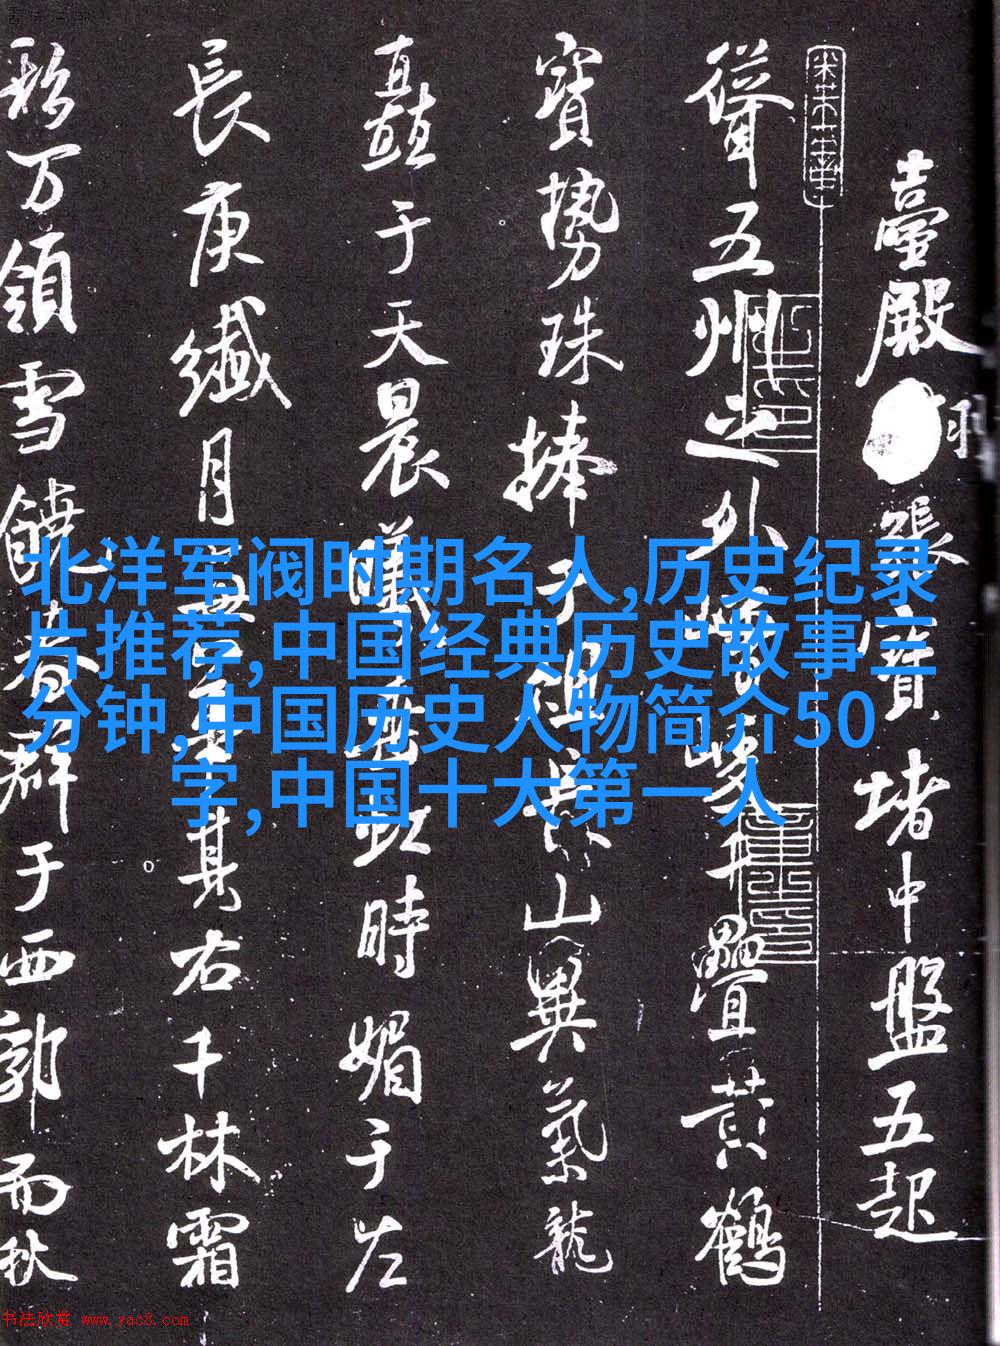 北洋军阀时期名人,历史纪录
片推荐,中国经典历史故事三
分钟,中国历史人物简介50
字,中国十大第一人
臺殿羽張寶堵中盤五起
聳五州之外峯疊黃鶴
寶勢珠捧于山異氣龍
矗于天晨曦時媚于左
長庚纖月其右千林霜
万嶺雪饒春群于西郭而秋
书法欣赏 www.yac8.com